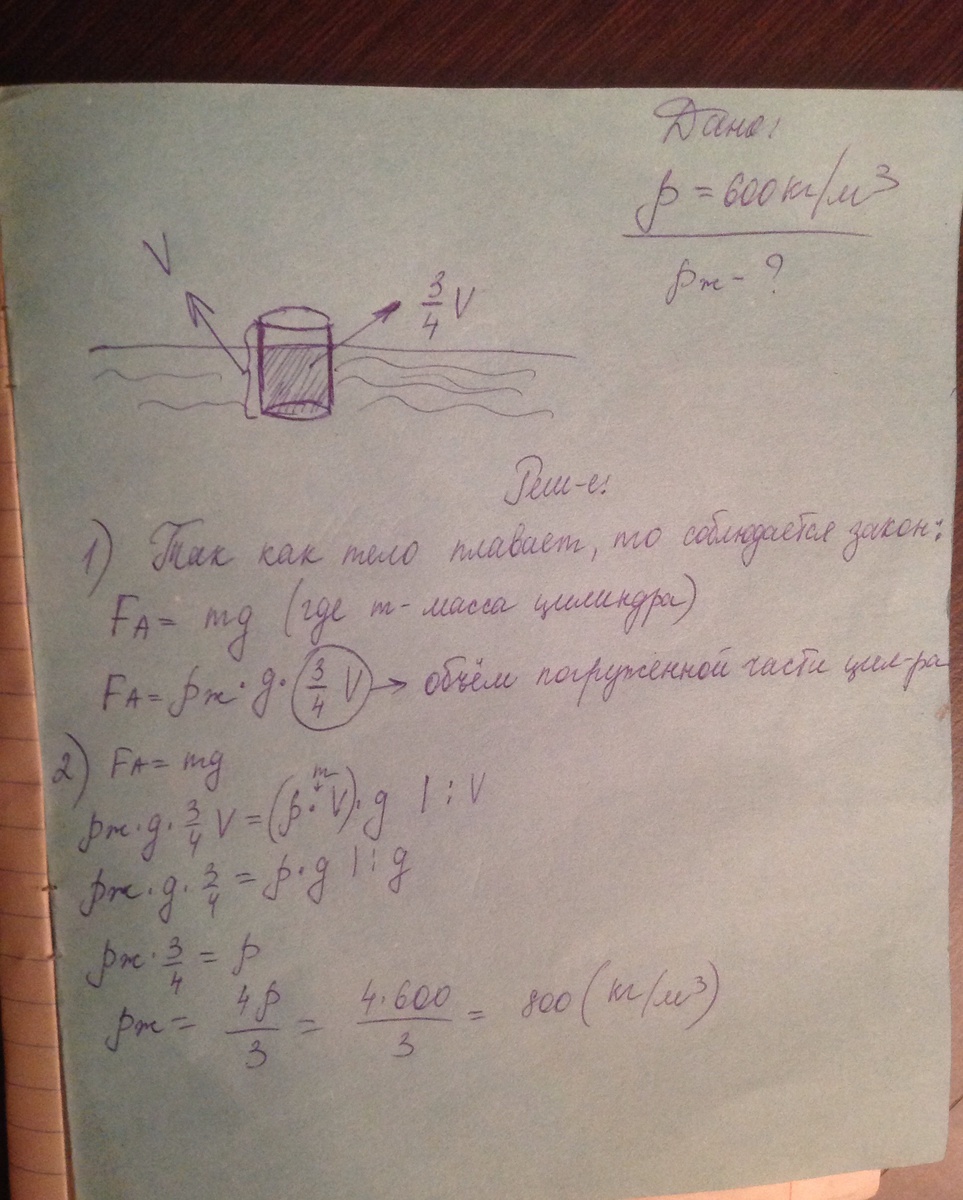 Дано:
ρ = 600 кг/м³
ρж - ?
V
3/4 V
Реш-е:
1) Так как тело плавает, то соблюдается закон:
FA = mg (где m - масса цилиндра)
FA = ρж · g · 3/4 V → объём погруженной части цил-ра
2) FA = mg
m
ρж · g · 3/4 V = (ρ · V) · g | : V
ρж · g · 3/4 = ρ · g | : g
ρж · 3/4 = ρ
ρж = 4ρ/3 = 4·600/3 = 800 (кг/м³)